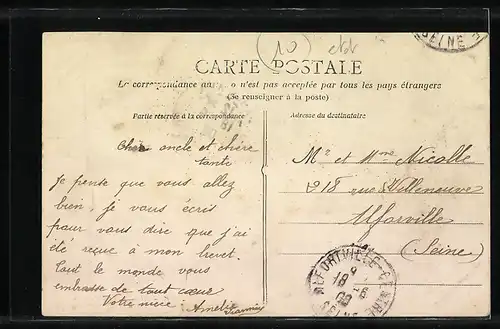 (10)
SEINE
CARTE POSTALE
La correspondance au o n'est pas acceptée par tous les pays étrangers
(Se renseigner à la poste)
Partie réservée à la correspondance
Adresse du destinataire
Cher oncle et chère
tante
Je pense que vous allez
bien, je vous écris
pour vous dire que j'ai
été reçue à mon brevet.
Tout le monde vous
embrasse de tout cœur
Votre nièce : Amélie
Mr et Mme Nicolle
218 rue Villeneuve
Alforville
(Seine)
ALFORTVILLE
SEINE